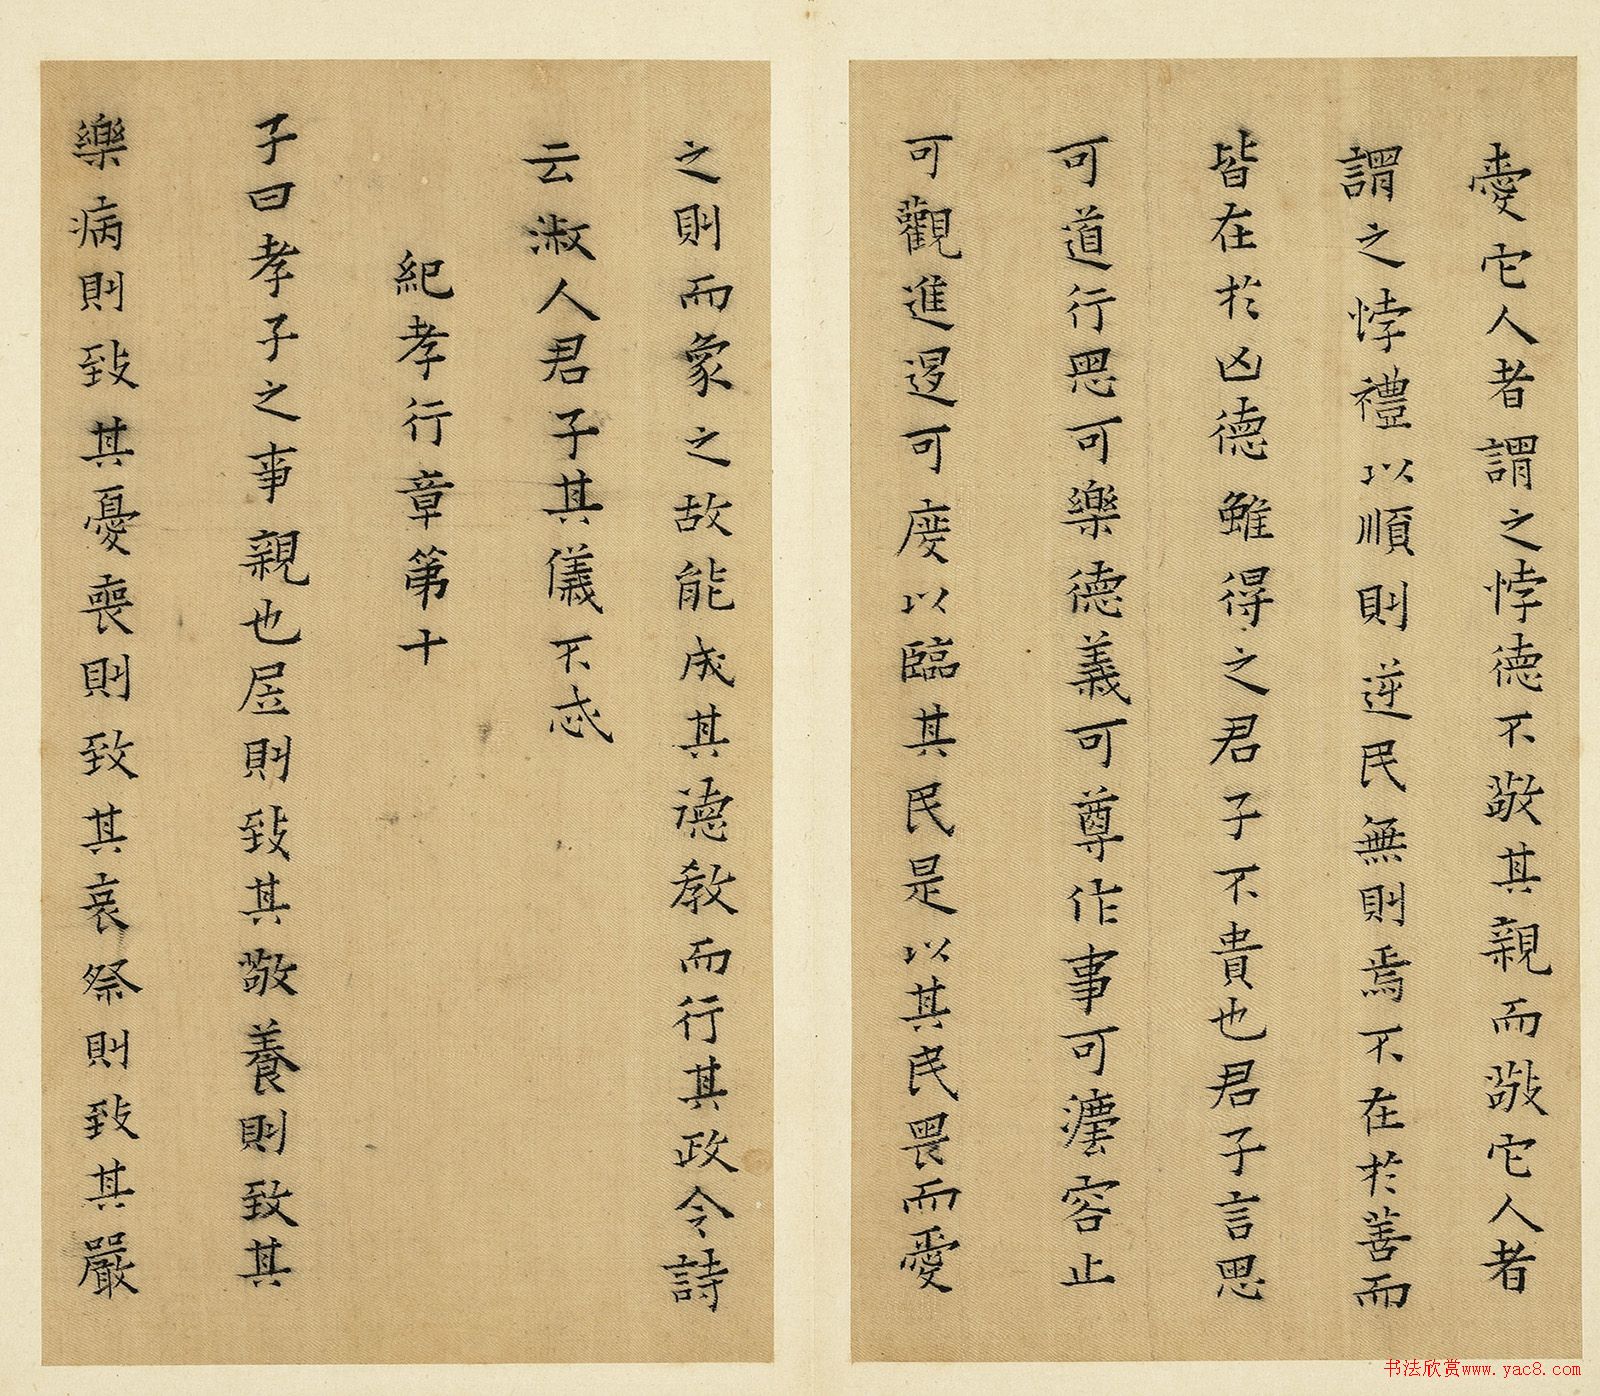 愛它人者謂之悖德不敬其親而敬它人者
謂之悖禮以順則逆民無則焉不在於善而
皆在於凶德雖得之君子不貴也君子言思
可道行思可樂德義可尊作事可灋容止
可觀進退可度以臨其民是以其民畏而愛
之則而象之故能成其德教而行其政令詩
云淑人君子其儀不忒
紀孝行章第十
子曰孝子之事親也居則致其敬養則致其
樂病則致其憂喪則致其哀祭則致其嚴
书法欣赏www.yac8.com